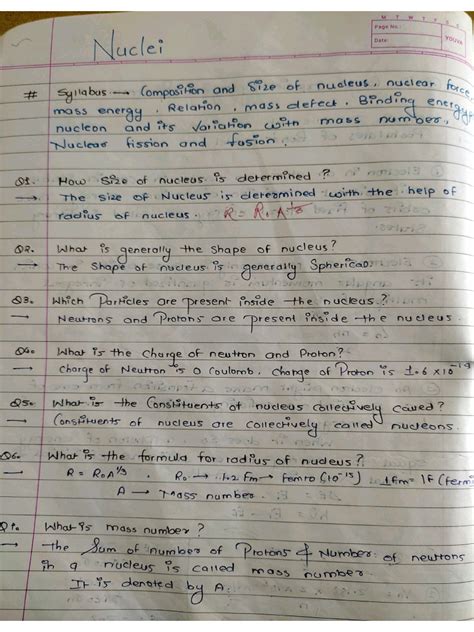 M T W T F S S
Page No.:
Date:
YOUVA
Nuclei
# Syllabus → Composition and Size of nucleus, nuclear force,
mass energy, Relation, mass defect, Binding energy,
nucleon and its Variation with mass number,
Nuclear fission and fusion.
Q1. How Size of nucleus is determined?
→ The size of Nucleus is determined with the help of
radius of nucleus. R = R₀ A^1/3
Q2. What is generally the shape of nucleus?
→ The Shape of nucleus is generally Spherical.
Q3. Which Particles are present inside the nucleus?
→ Neutrons and Protons are present inside the nucleus
Q4. What is the Charge of neutron and Proton?
→ Charge of Neutron is 0 Coulomb, charge of Proton is 1.6 × 10^-19
Q5. What is the Constituents of nucleus collectively called?
→ Constituents of nucleus are collectively called nucleons.
Q6. What is the formula for radius of nucleus?
→ R = R₀A^1/3 . R₀ → 1.2 Fm → femto (10^-15) 1Fm = 1F (fermi
A → Mass number.
Q7. What is mass number?
→ the Sum of number of Protons & Number of neutrons
in a nucleus is called mass number.
It is denoted by A.